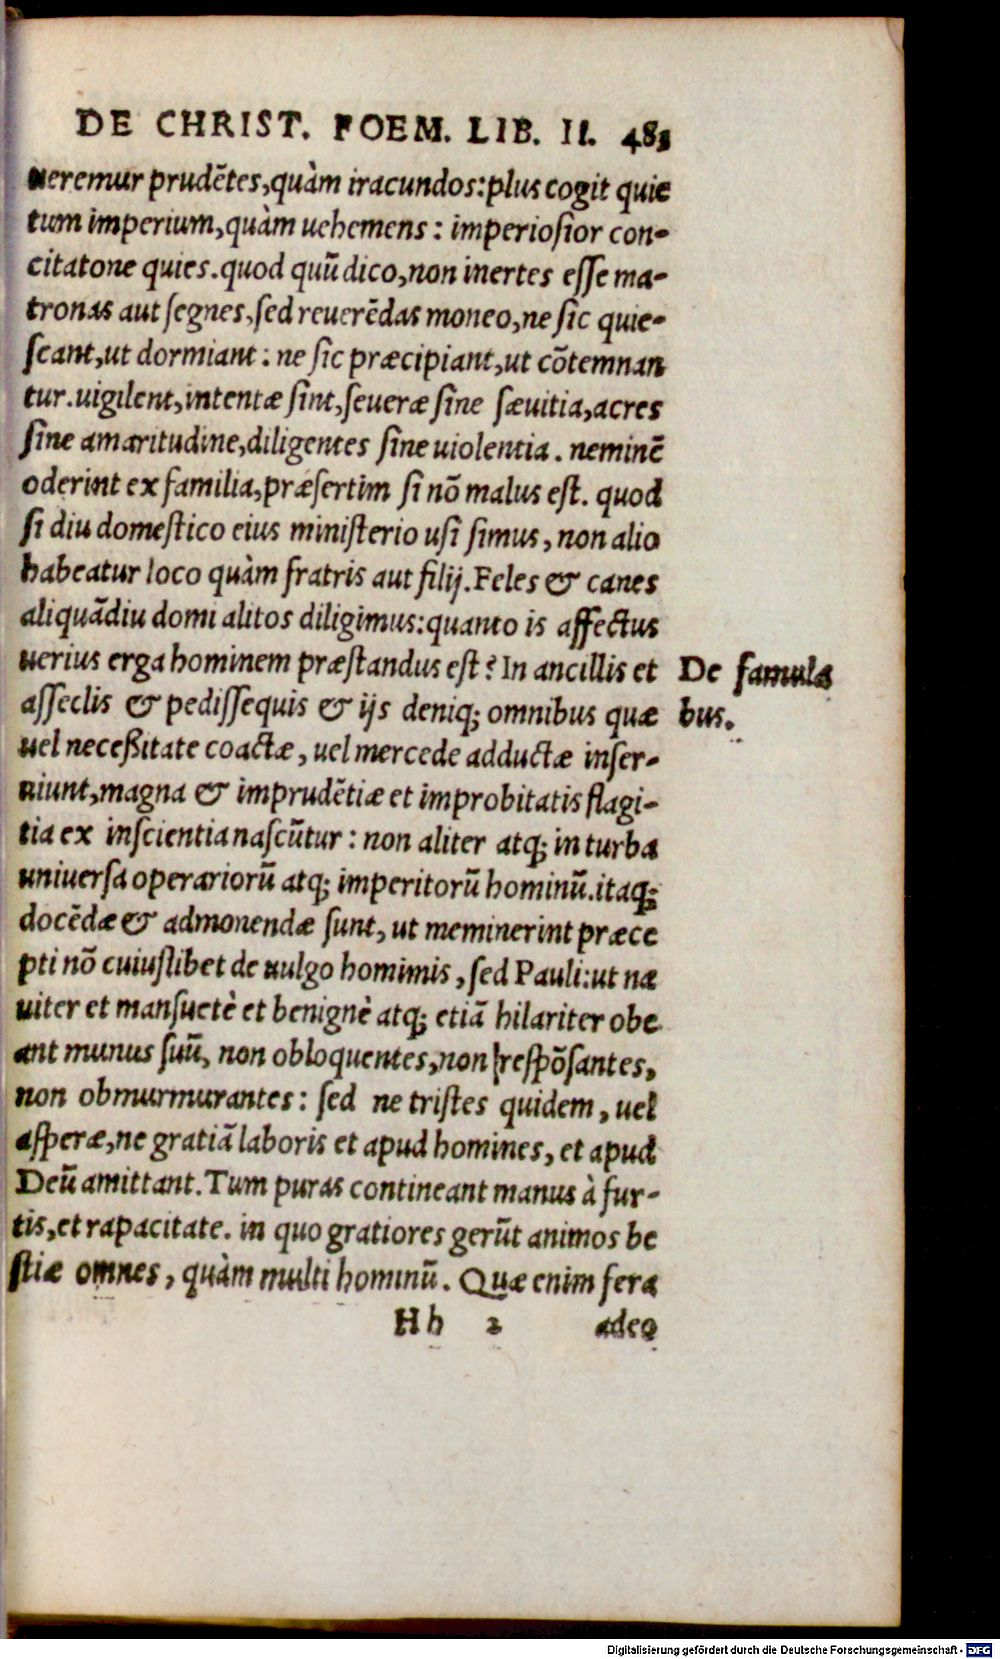 DE CHRIST. FOEM. LIB. II. 483
ueremur prudẽtes,quàm iracundos:plus cogit quie
tum imperium,quàm uehemens: imperiosior con-
citatone quies.quod quũ dico,non inertes esse ma-
tronas aut segnes,sed reuerẽdas moneo,ne sic quie-
scant,ut dormiant: ne sic præcipiant,ut cõtemnan
tur.uigilent,intentæ sint,seueræ sine sæuitia,acres
sine amaritudine,diligentes sine uiolentia. neminẽ
oderint ex familia,præsertim si nõ malus est. quod
si diu domestico eius ministerio usi simus, non alio
habeatur loco quàm fratris aut filij.Feles & canes
aliquãdiu domi alitos diligimus:quanto is affectus
uerius erga hominem præstandus est? In ancillis et
asseclis & pedissequis & ijs deniq; omnibus quæ
uel neceßitate coactæ, uel mercede adductæ inser-
uiunt,magna & imprudẽtiæ et improbitatis flagi-
tia ex inscientia nascũtur: non aliter atq; in turba
uniuersa operariorũ atq; imperitorũ hominũ.itaq;
docẽdæ & admonendæ sunt, ut meminerint præce
pti nõ cuiuslibet de uulgo homimis, sed Pauli:ut na
uiter et mansuetè et benignè atq; etiã hilariter obe
ant munus suũ, non obloquentes,non respõsantes,
non obmurmurantes: sed ne tristes quidem, uel
asperæ,ne gratiã laboris et apud homines, et apud
Deũ amittant.Tum puras contineant manus à fur-
tis,et rapacitate. in quo gratiores gerũt animos be
stiæ omnes, quàm multi hominũ. Quæ enim fera
Hh 2 adeo
De famula
bus.
Digitalisierung gefördert durch die Deutsche Forschungsgemeinschaft - DFG